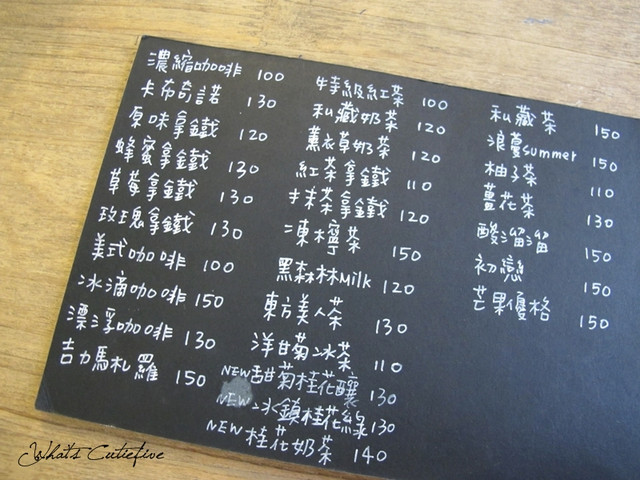 濃縮咖啡 100
卡布奇諾 130
原味拿鐵 120
蜂蜜拿鐵 130
草莓拿鐵 130
玫瑰拿鐵 130
美式咖啡 100
冰滴咖啡 150
漂浮咖啡 130
吉力馬札羅 150
特級紅茶 100
私藏奶茶 120
薰衣草奶茶 120
紅茶拿鐵 110
抹茶拿鐵 120
凍檸茶 150
黑森林Milk 120
東方美人茶 130
洋甘菊冰茶 110
NEW甜菊桂花釀 130
NEW冰鎮桂花綠 130
NEW桂花奶茶 140
私藏茶 150
浪蔓summer 150
柚子茶 110
薑花茶 130
酸溜溜 150
初戀 150
芒果優格 150
What's Cutiefive